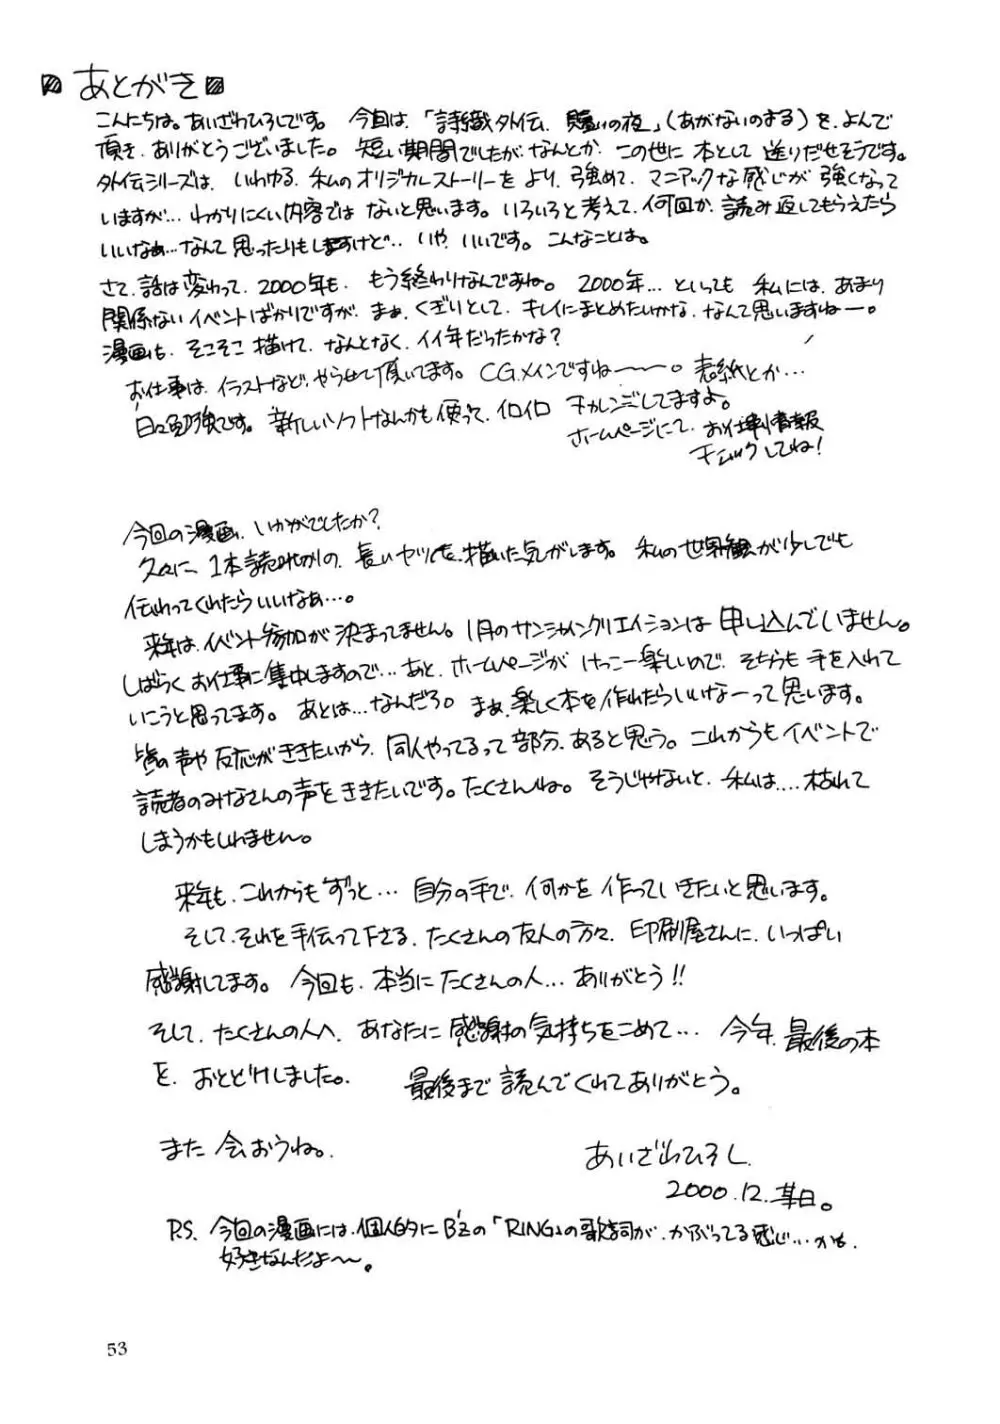 あとがき
こんにちは。あいざわひろしです。 今回は、「詩織外伝、贖いの夜」(あがないのまる)を、よんで
頂き、ありがとうございました。短い期間でしたが、なんとか、この世に本として送りだせそうです。
外伝シリーズは、いわゆる、私のオリジナルストーリーをより、強めて、マニアックな感じが強くなって
いますが…わかりにくい内容ではないと思います。いろいろと考えて、何回か、読み返してもらえたら
いいなぁ…なんて思ったりもしますけど…いや、いいです。こんなことは。
さて、話は変わって、2000年も、もう終わりなんですね。2000年…といっても私には、あまり
関係ないイベントばかりですが、まぁ、くぎりとして、キレイにまとめたいかな、なんて思いますねー。
漫画も、そこそこ描けて、なんとなく、イイ年だったかな?
お仕事は、イラストなど、やらせて頂いてます。CGメインですね〜。表紙とか…
日々勉強です。新しいソフトなんかも使って、イロイロチャレンジしてますよ。
ホームページにて、お仕事情報
チェックしてね!
今回の漫画、いかがでしたか?
久々に、1本読みきりの、長いヤツを、描いた気がします。私の世界観が少しでも
伝わってくれたらいいなぁ…。
来年は、イベント参加が決まってません。1月のサンシャインクリエイションは申し込んでいません。
しばらくお仕事に集中しますので…あと、ホームページがけっこー楽しいので、そちらも手を入れて
いこうと思ってます。あとは…なんだろ。まぁ、楽しく本を作れたらいいなーって思います。
皆の声や反応がききたいから、同人やってるって部分、あると思う。これからもイベントで
読者のみなさんの声をききたいです。たくさんね。そうじゃないと、私は....枯れて
しまうかもしれません。
来年も、これからもずっと…自分の手で、何かを作っていきたいと思います。
そして、それを手伝って下さる、たくさんの友人の方々、印刷屋さんに、いっぱい
感謝してます。今回も、本当にたくさんの人…ありがとう!!
そして、たくさんの人へ、あなたに感謝の気持ちをこめて…今年、最後の本
を、おとどけしました。 最後まで読んでくれてありがとう。
また会おうね。
あいざわひろし
2000.12.某日。
P.S. 今回の漫画には、個人的にB'zの「RING」の歌詞が、かぶってる感じ…かも。
好きなんだよ〜。
53